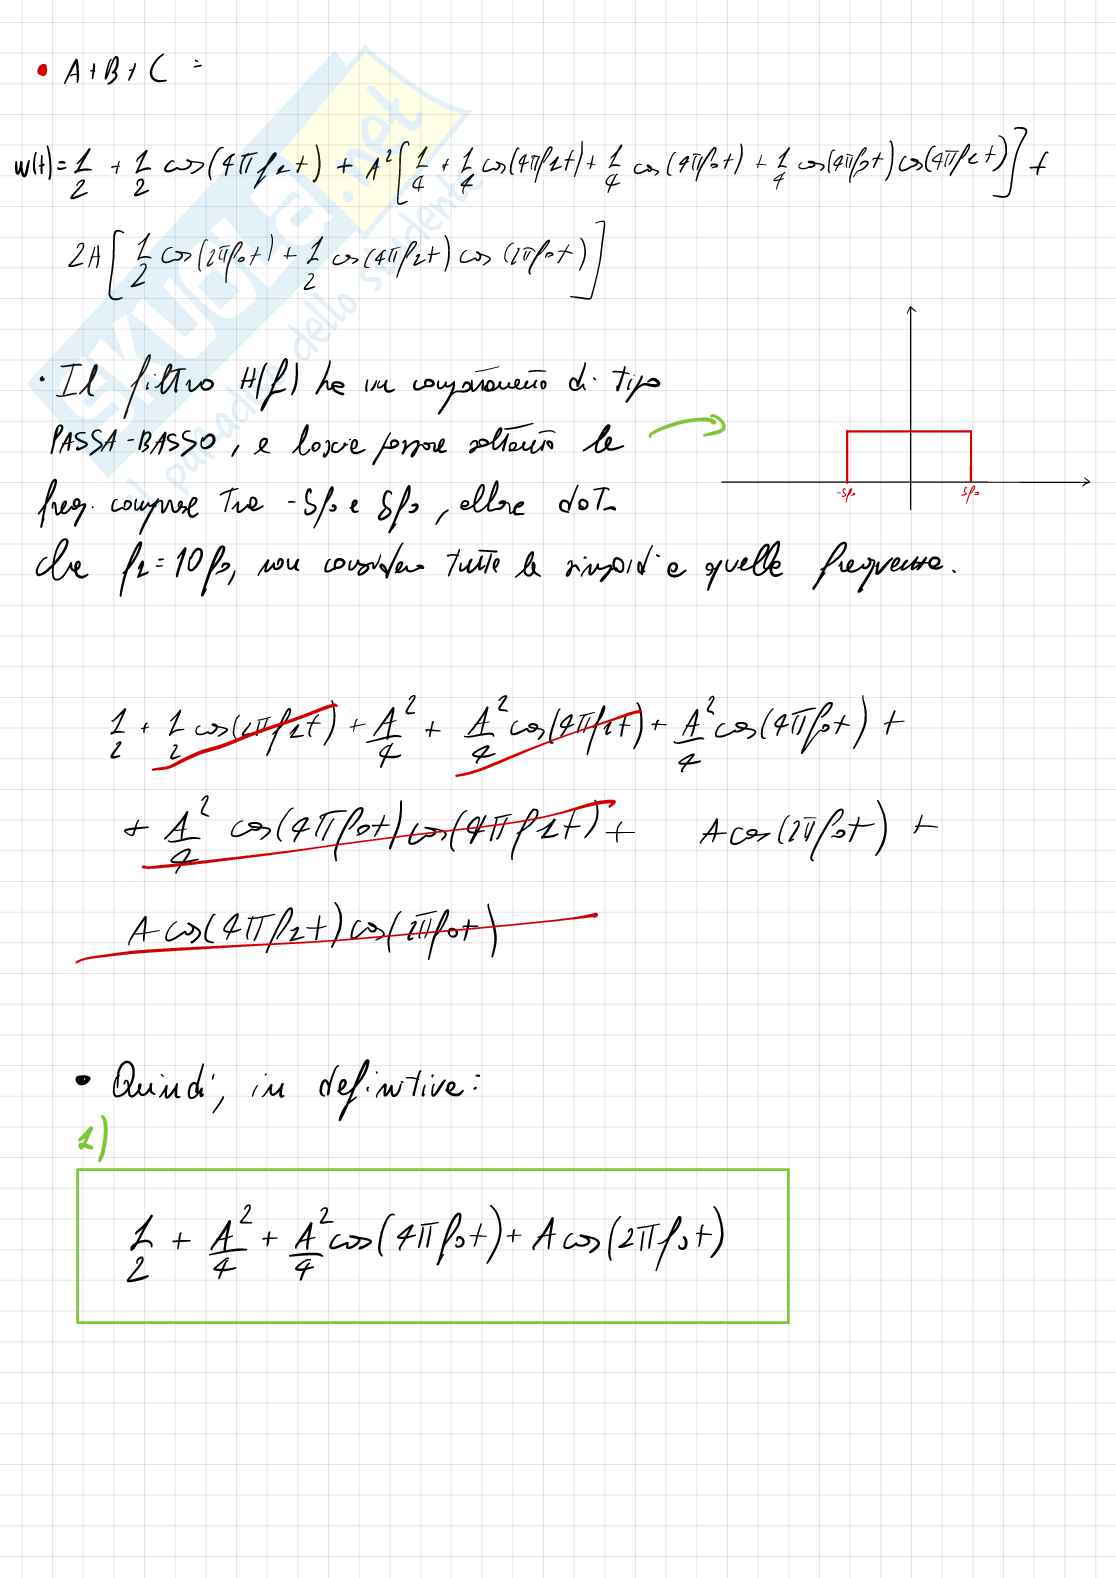 • A+B+C =
w(t) = 1/2 + 1/2 cos(4πf₁t) + A²[1/4 + 1/4 cos(4πf₁t) + 1/4 cos(4πf₀t) + 1/4 cos(4πf₀t) cos(4πf₁t)] +
2A[1/2 cos(2πf₀t) + 1/2 cos(4πf₁t) cos(2πf₀t)]
• Il filtro H(f) ha un comportamento di tipo
PASSA-BASSO, e lascia passare soltanto le
freq. comprese tra -5f₀ e 5f₀, allora dato
-5f₀ 5f₀
che f₁ = 10f₀, non considero tutte le sinusoidi a quelle frequenze.
1/2 + 1/2 cos(4πf₁t) + A²/4 + A²/4 cos(4πf₁t) + A²/4 cos(4πf₀t) +
+ A²/4 cos(4πf₀t) cos(4πf₁t) + A cos(2πf₀t) +
A cos(4πf₁t) cos(2πf₀t)
• Quindi, in definitiva:
1)
1/2 + A²/4 + A²/4 cos(4πf₀t) + A cos(2πf₀t)
SKUOLA.net
il paradiso dello studente